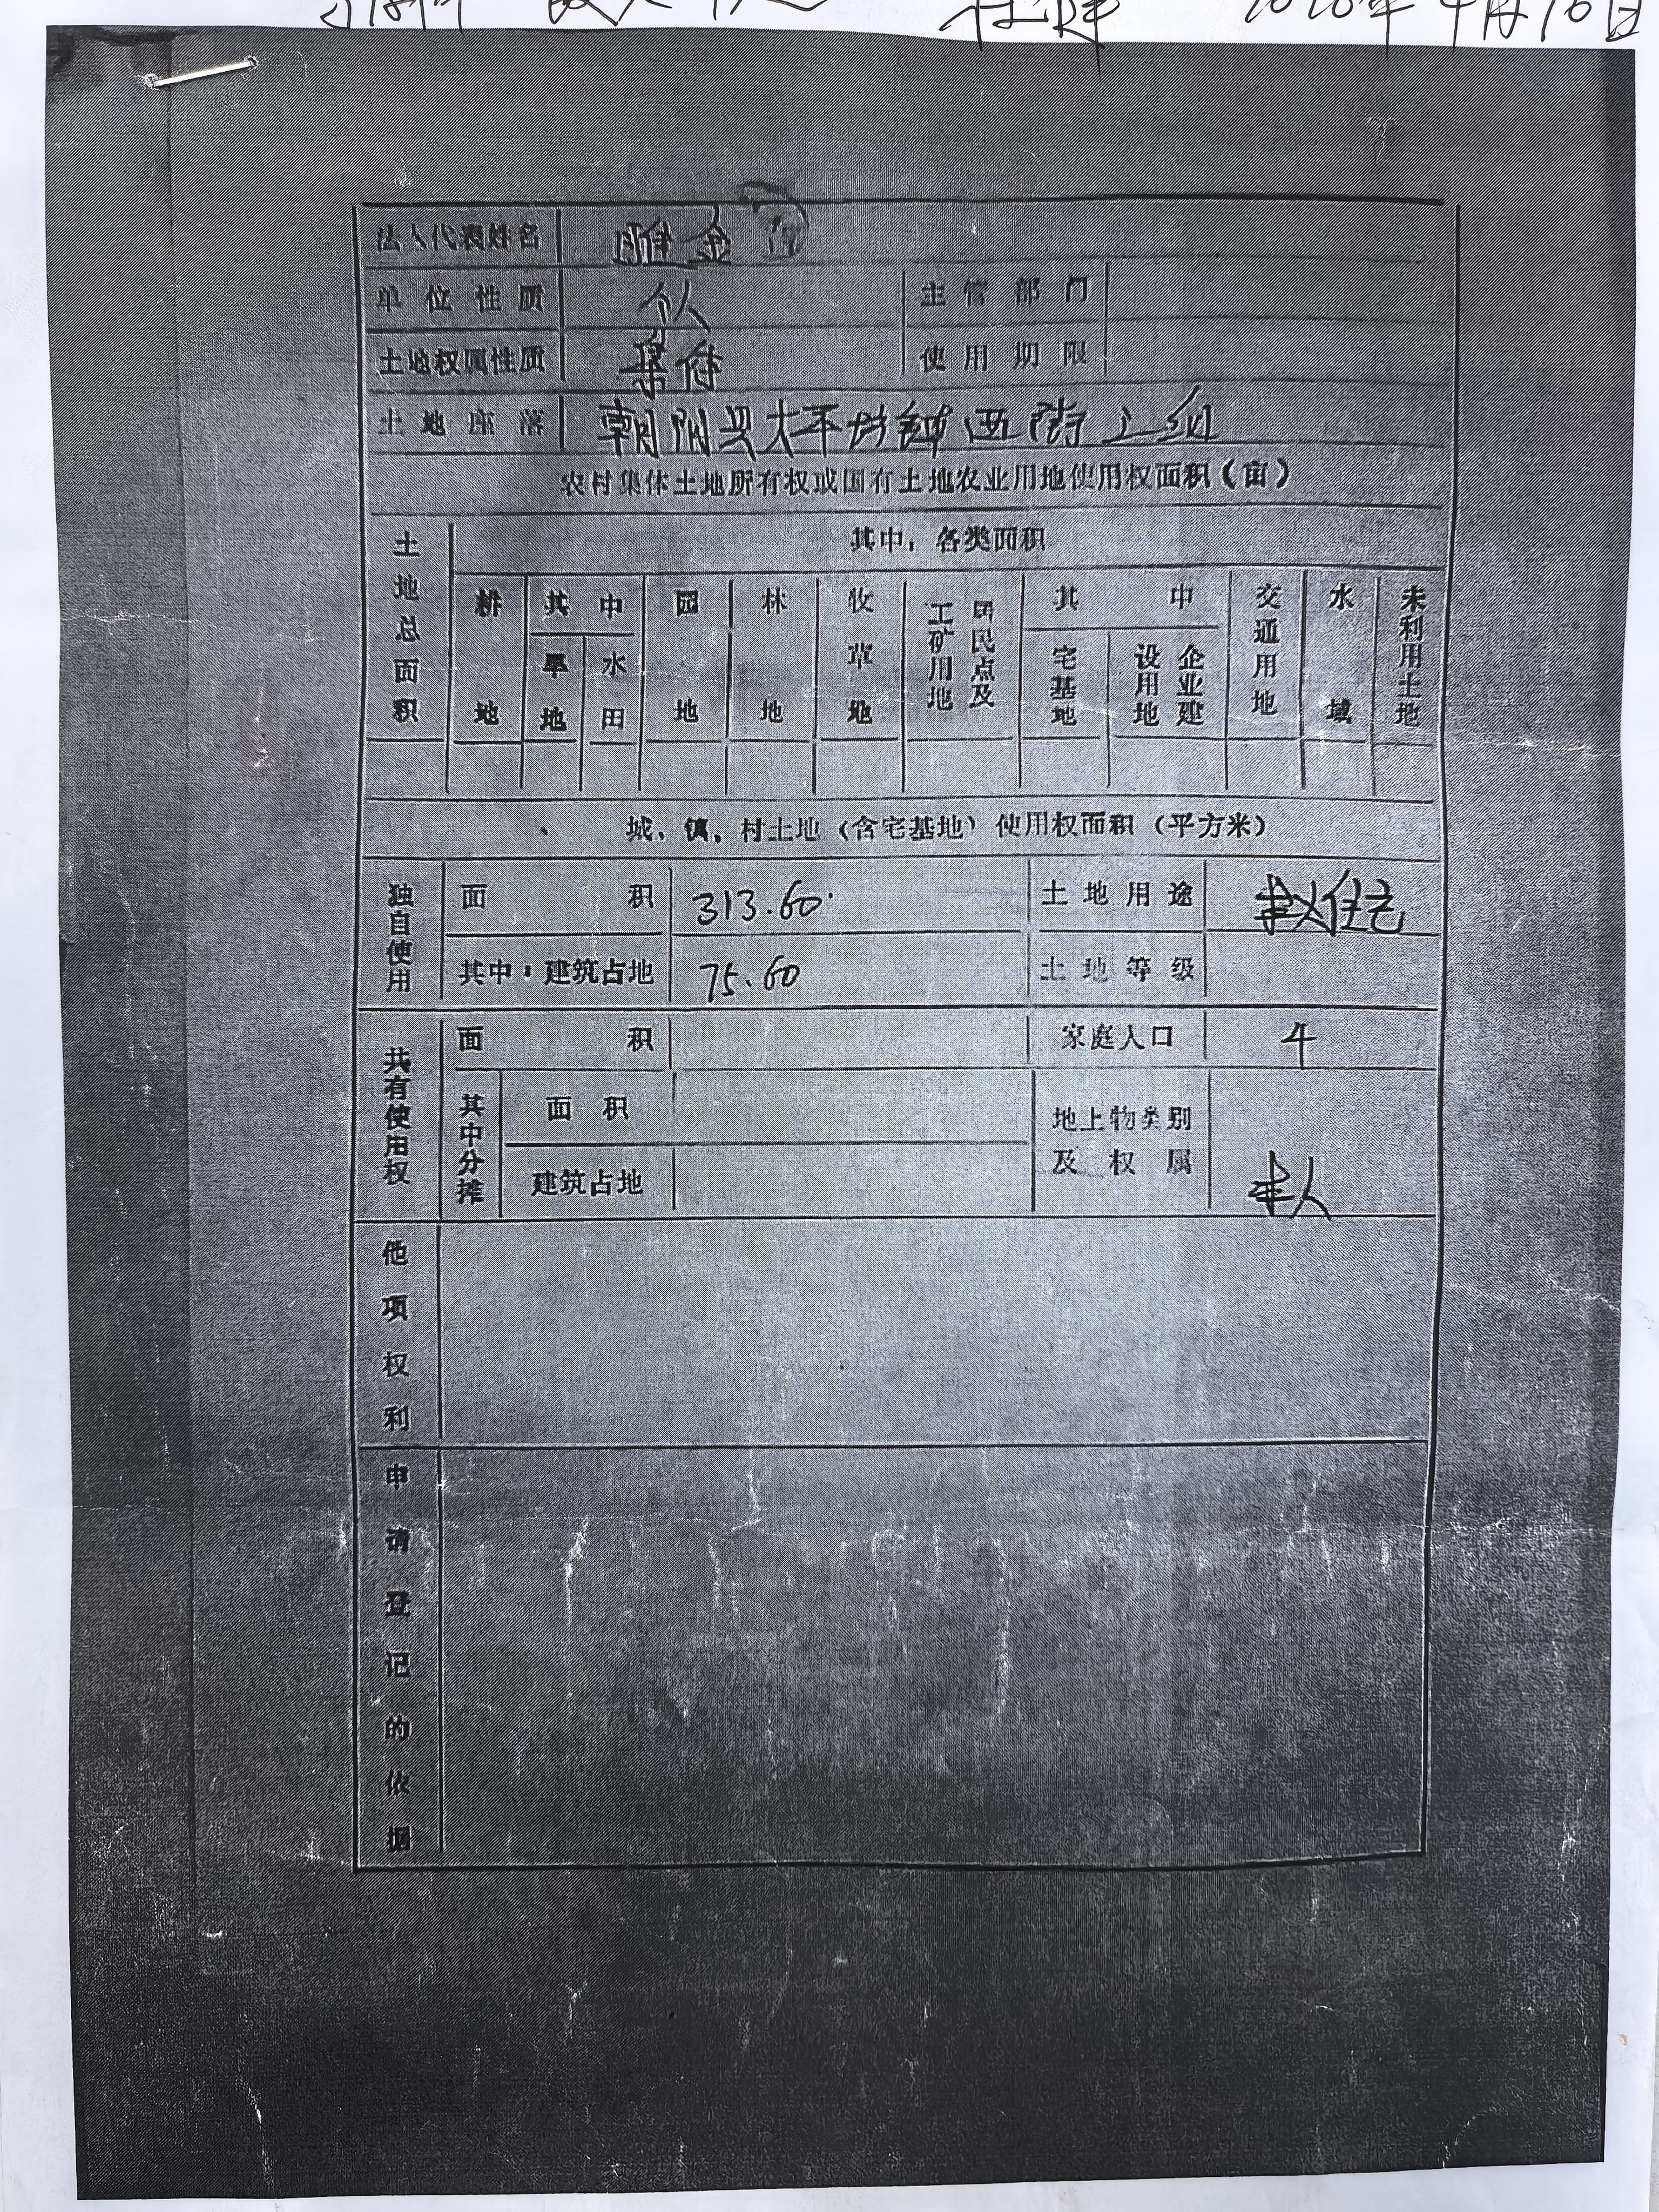 2020年4月16日
法人代表姓名
单位性质 个人 主管部门
土地权属性质 集体 使用期限
土地座落 朝阳县太平房镇西街 组
农村集体土地所有权或国有土地农业用地使用权面积(亩)
土地总面积 其中,各类面积
耕地 其中 旱地 水田 园地 林地 牧草地 居民点及工矿用地 其中 宅基地 企业建设用地 交通用地 水域 未利用土地
城、镇,村土地(含宅基地)使用权面积(平方米)
独自使用 面积 313.60 土地用途 住宅
其中:建筑占地 75.60 土地等级
共有使用权 面积 家庭人口 4
其中分摊 面积 地上物类别及权属
建筑占地
他项权利
申请登记的依据